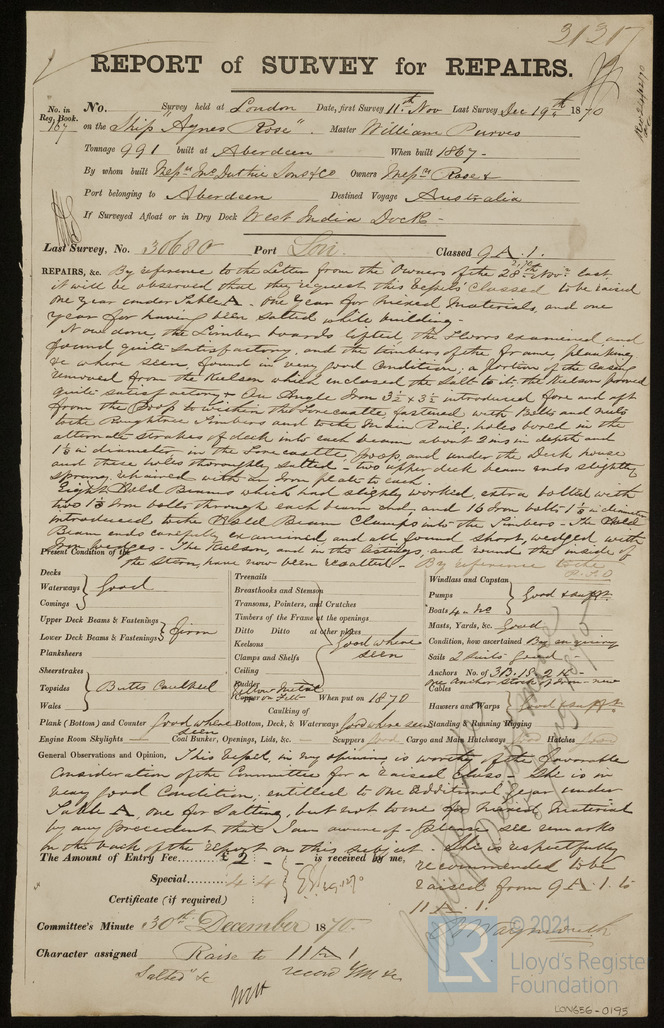 31317
REPORT of SURVEY for REPAIRS.
No. in Reg. Book. 167
No. Survey held at London Date, first Survey 11th Nov Last Survey Dec 19th 1870
on the Ship "Agnes Rose". Master William Purves
Tonnage 991 built at Aberdeen When built 1867-
By whom built Messrs McDuthie Sons & Co Owners Messrs Rose &
Port belonging to Aberdeen Destined Voyage Australia
If Surveyed Afloat or in Dry Dock West India Dock-
Last Survey, No. 30680 Port Lon. Classed 9 A. 1.
REPAIRS, &c. By reference to the Letter from the Owners of the 28th Novr last
it will be observed that they request this vessels classed to be raised
One year under Table A. One Year for Mixed Materials, and one
Year for having been Salted while building.
Now done, the Limber boards lifted, the Floors examined and
found quite satisfactory, and the timbers of the frame, planking
&c where seen, found in very good Condition, a portion of the Casing
removed from the Kelson which enclosed the Salt to it, the Kelson proved
quite satisfactory & An Angle Iron 3½ x 3½ introduced fore and aft
from the Poop to within the Forecastle, fastened with Bolts and nuts
to the Roughtree Timbers and to the Main Rail, holes bored in the
alternate strakes of deck into each beam about 2 ins in depth and
1½ in diameter, in the Forecastle, poop, and under the Deck house
and these holes thoroughly salted - two upper deck beam ends slightly
sprung, repaired with an Iron plate to each.
Eight Hold Beams which had slightly worked, extra bolted with
two Iron bolts through each beam end, and 16 Iron bolts 1⅛ in diameter
introduced to the Hold Beam Clamps into the Timbers - The Hold
Beam ends carefully examined and all found short, wedged with
Iron wedges - The Kelson, and in the listings, and round the inside of
the Stern, have now been resalted. By reference to the
P.T.O
Present Condition of the
Decks
Waterways } Good
Comings
Upper Deck Beams & Fastenings
Lower Deck Beams & Fastenings } Firm
Planksheers
Sheerstrakes
Topsides } Butts Caulked
Wales
Plank (Bottom) and Counter Good where seen
Engine Room Skylights —
Treenails
Breasthooks and Stemson
Transoms, Pointers, and Crutches
Timbers of the Frame at the openings
Ditto Ditto at other places
Keelsons } Good where seen
Clamps and Shelfs
Ceiling
Rudder
Yellow Metal
Copper on Felt When put on 1870
Caulking of
Bottom, Deck, & Waterways Good where seen
Coal Bunker, Openings, Lids, &c. — Scuppers good
Windlass and Capstan
Pumps } Good & sufft
Boats 4 in No
Masts, Yards, &c. Good
Condition, how ascertained By
Sails 2 Suits Good
Anchors No. of 3B. 1S. 2K-
one Anchor Stock Iron new
Cables
Hawsers and Warps } Good & suffit
Standing & Running Rigging
Cargo and Main Hatchways good Hatches good
General Observations and Opinion, This Vessel, in my opinion is worthy of the favorable
Consideration of the Committee for a raised Class - She is in
very good Condition, entitled to one additional year under
Table A, one for Salting, but not to me for Mixed Material
by any precedent that I am aware of - Please see remarks
on the back of the report on this subject. She is respectfully
recommended to be
raised from 9 A. 1. to
11 A. 1.
The Amount of Entry Fee.......£ 2 - - is received by me,
Special......... 4 4
Certificate (if required)
Committee's Minute 30th December 1870.
Character assigned Raise to 11 A 1
Salted &c record YM &c
© 2021
LR
Lloyd's Register
Foundation
LON656-0195